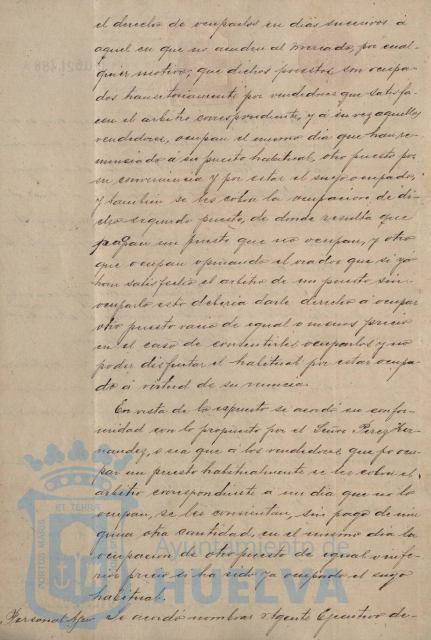 el derecho de ocuparlos en dias sucesivos á
aquel en que no acuden al mercado, por cual
quier motivo; que dichos puestos, son ocupa
dos transitoriamente por vendedores que satisfa
cen el arbitrio correspondiente, y á su vez aquellos
vendedores, ocupan el mismo dia que han re
nunciado a su puesto habitual, otro puesto por
su conveniencia y por estar el suyo ocupado,
y tambien se les cobra la ocupacion de di
cho segundo puesto, de donde resulta que
pagan un puesto que no ocupan, y otro
que ocupan opinando el orador que si ya
han satisfecho el arbitrio de un puesto sin
ocuparlo esto deberia darle derecho á ocupar
otro puesto vacio de igual o menos precio
en el caso de consentirles ocuparlos y no
poder disfrutar el habitual por estar ocupa
do á virtud de su renuncia.
En vista de lo expuesto se acordó en confor
midad con lo propuesto por el Señor Perez Her
nandez, o sea que á los vendedores que ocu
pan un puesto habitualmente se les cobre el
arbitrio correspondiente a un dia que no lo
ocupan, se les consientan, sin pago de nin
guna otra cantidad, en el mismo dia la
ocupacion de otro puesto de igual o infe
rior precio si ha sido ya ocupado el suyo
habitual.
Personal Se acordó nombrar Agente Ejecutivo de-
PORTUS MARIS ET TERRAE
Ayuntamiento de
HUELVA